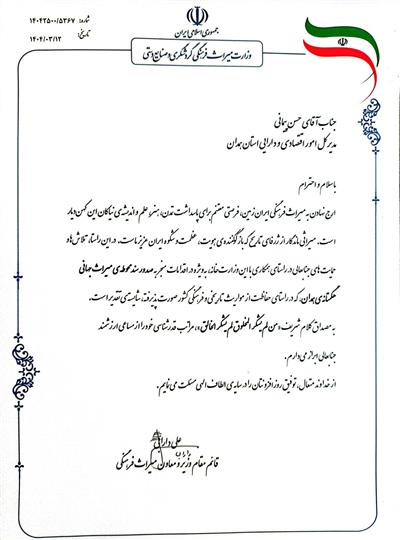 جمهوری اسلامی ایران
وزارت میراث فرهنگی گردشگری و صنایع دستی
شماره: ۱۴۰۴۲۵۰۰/۵۳۶۷
تاریخ: ۱۴۰۴/۰۳/۱۲
جناب آقای حسن پیمانی
مدیر کل امور اقتصادی و دارایی استان همدان
با سلام و احترام
ارج نهادن به میراث فرهنگی ایران زمین، فرصتی مغتنم برای پاسداشت تمدن، هنر، علم و اندیشه‌ی نیاکان این کهن دیار
است. میراثی ماندگار از ژرفای تاریخ که بازگوکننده‌ی هویت، عظمت و شکوه ایران عزیز ماست. در این راستا، تلاش‌ها و
حمایت‌های جنابعالی در راستای همکاری با این وزارت‌خانه، به ویژه در اقدامات منجر به صدور سند محوطه‌ی میراث جهانی
هگمتانه‌ی همدان، که در راستای حفاظت از مواریث تاریخی و فرهنگی کشور صورت پذیرفته، شایسته‌ی تقدیر است.
به مصداق کلام شریف «من لم یشکر المخلوق لم یشکر الخالق»، مراتب قدرشناسی خود را از مساعی ارزشمند
جنابعالی ابراز می‌دارم.
از خداوند متعال، توفیق روزافزونتان را در سایه‌ی الطاف الهی مسئلت می‌نمایم.
علی دارابی
قائم مقام وزیر و معاون میراث فرهنگی